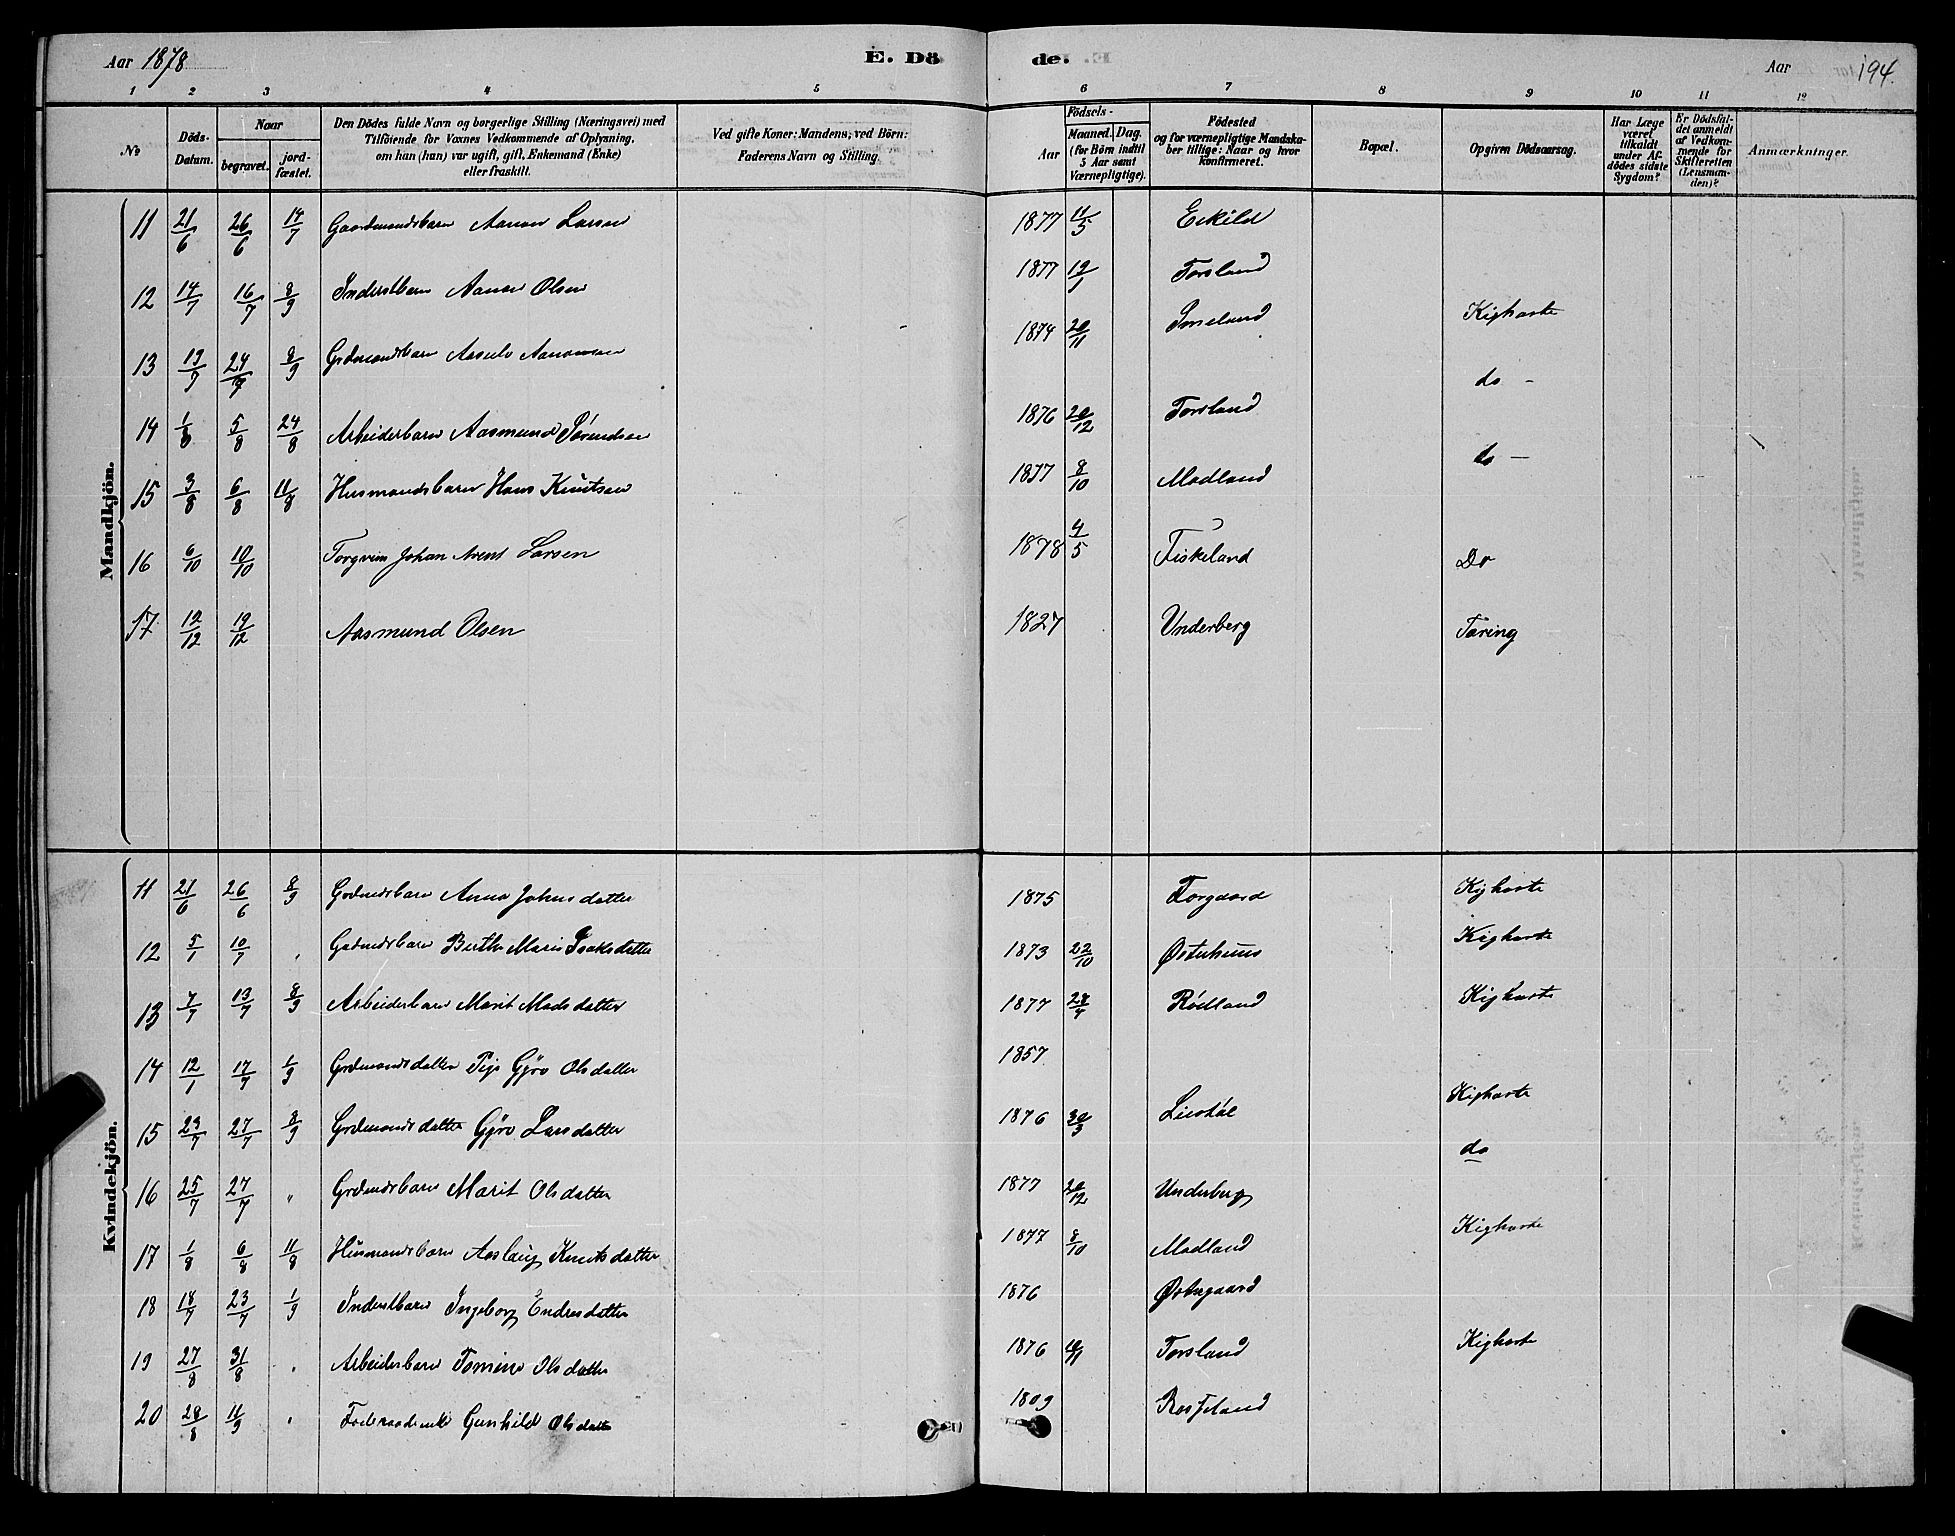 Aar 1878
E. Dö
de.
Aar
194.
1 2 3 4 5 6 7 8 9 10 11 12
No
Döds-Datum.
Naar
begravet.
jord-fæstet.
Den Dödes fulde Navn og borgerlige Stilling (Næringsvei) med
Tilföiende for Voxnes Vedkommende af Oplysning,
om han (hun) var ugift, gift, Enkemand (Enke)
eller fraskilt.
Ved gifte Koner: Mandens; ved Börn:
Faderens Navn og Stilling.
Födsels-
Aar
Maaned. Dag.
(for Börn indtil
5 Aar samt
Værnepligtige).
Födested
og for værnepligtige Mandska-
ber tillige: Naar og hvor
konfirmeret.
Bopæl.
Opgiven Dödsaarsag.
Har Læge
været
tilkaldt
under Af-
dödes sidste
Sygdom?
Er Dödsfal-
det anmeldt
af Vedkom-
mende for
Skifteretten
(Lensman-
den)?
Anmærkninger.
Mandkjön.
11 21/6 26/6 14/7 Gaardmandsbarn Aanon Larsen 1877 11/5 Eskild
12 14/7 16/7 8/9 Inderstbarn Aanon Olsen 1877 19/1 Torsland
13 19/7 24/7 8/9 Grdmandsbarn Aasulv Aanonsen 1874 20/11 Kighoste
14 1/8 5/8 24/8 Arbeiderbarn Aasmund Sörensen 1876 20/12 Torsland do -
15 3/8 6/8 11/8 Husmandsbarn Hans Knutsen 1877 8/10 Modland do -
16 6/10 10/10 Torgrim Johan Arent Larsen 1878 4/5 Fiskeland Do
17 12/12 19/12 Aasmund Olsen 1827 Underberg Tæring
Kvindekjön.
11 21/6 26/6 8/9 Grdmdsbarn Anna Johnsdatter 1875 Torgaard Kighoste
12 5/7 10/7 " Gadmdsbarn Berthe Marie Isaksdatter 1873 22/10 Østerhuus Kighoste
13 7/7 13/7 8/9 Arbeiderbarn Marit Madsdatter 1877 28/4 Rödland Kighoste
14 12/1 17/7 1/9 Grdmandsdatter Pige Gjöro Olsdatter 1857
15 23/7 27/7 8/9 Grdmandsdatter Gjöro Larsdatter 1876 30/3 Lisstöl Kighoste
16 25/7 27/7 " Grdmdsbarn Marit Olsdatter 1877 20/12 Underberg do
17 1/8 6/8 11/8 Husmandsbarn Aaslaug Knutsdatter 1877 8/10 Modland Kighoste
18 18/7 23/7 1/9 Inderstbarn Ingeborg Endresdatter 1876 Østergaard
19 27/8 31/8 " Arbeiderbarn Tomine Olsdatter 1876 Torsland Kighoste
20 28/8 11/9 " Foderaadsenke Gunhild Olsdatter 1809 Rosseland